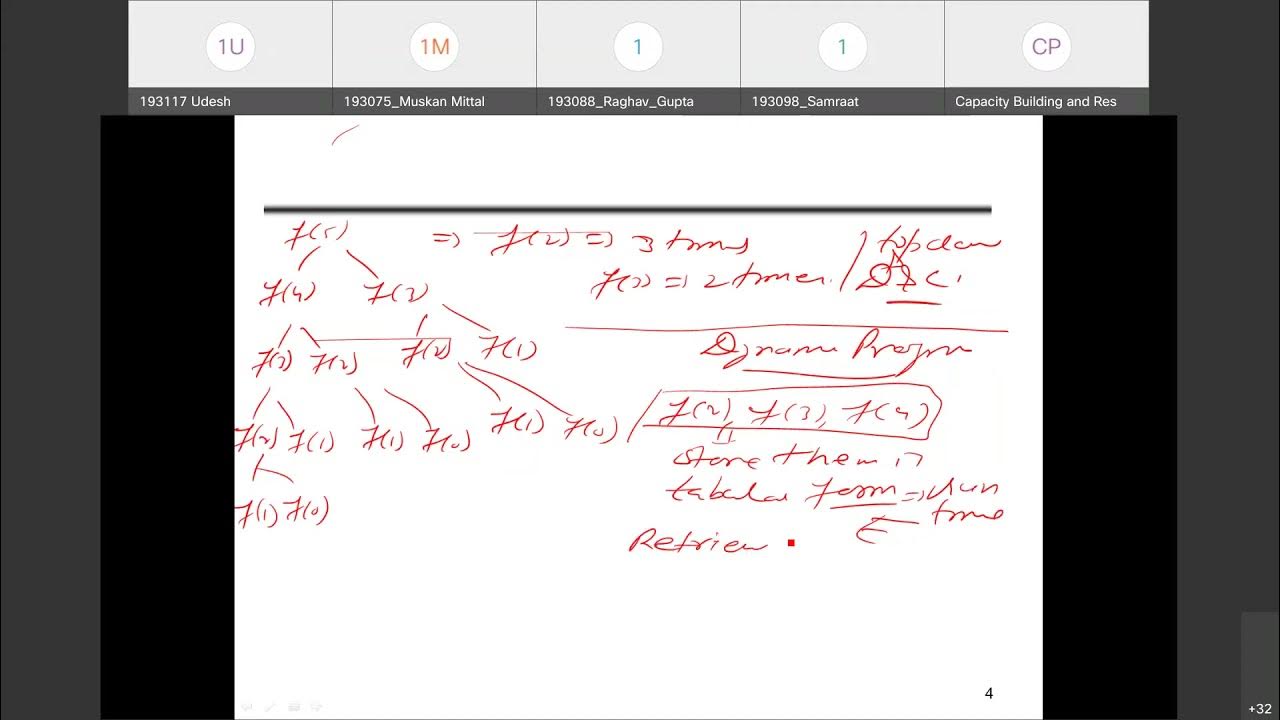 1U 1M 1 1 CP
193117 Udesh 193075_Muskan Mittal 193088_Raghav_Gupta 193098_Samraat Capacity Building and Res
f(5) => f(2) => 3 times / top down
f(3) => 2 times. / D&C.
f(4) f(3)
Dynamic Program
f(3) f(2) f(2) f(1)
f(2), f(3), f(4)
f(2) f(1) f(1) f(0) f(1) f(0)
store them in
tabular form => run
time
f(1) f(0)
Retrieve
4
+32